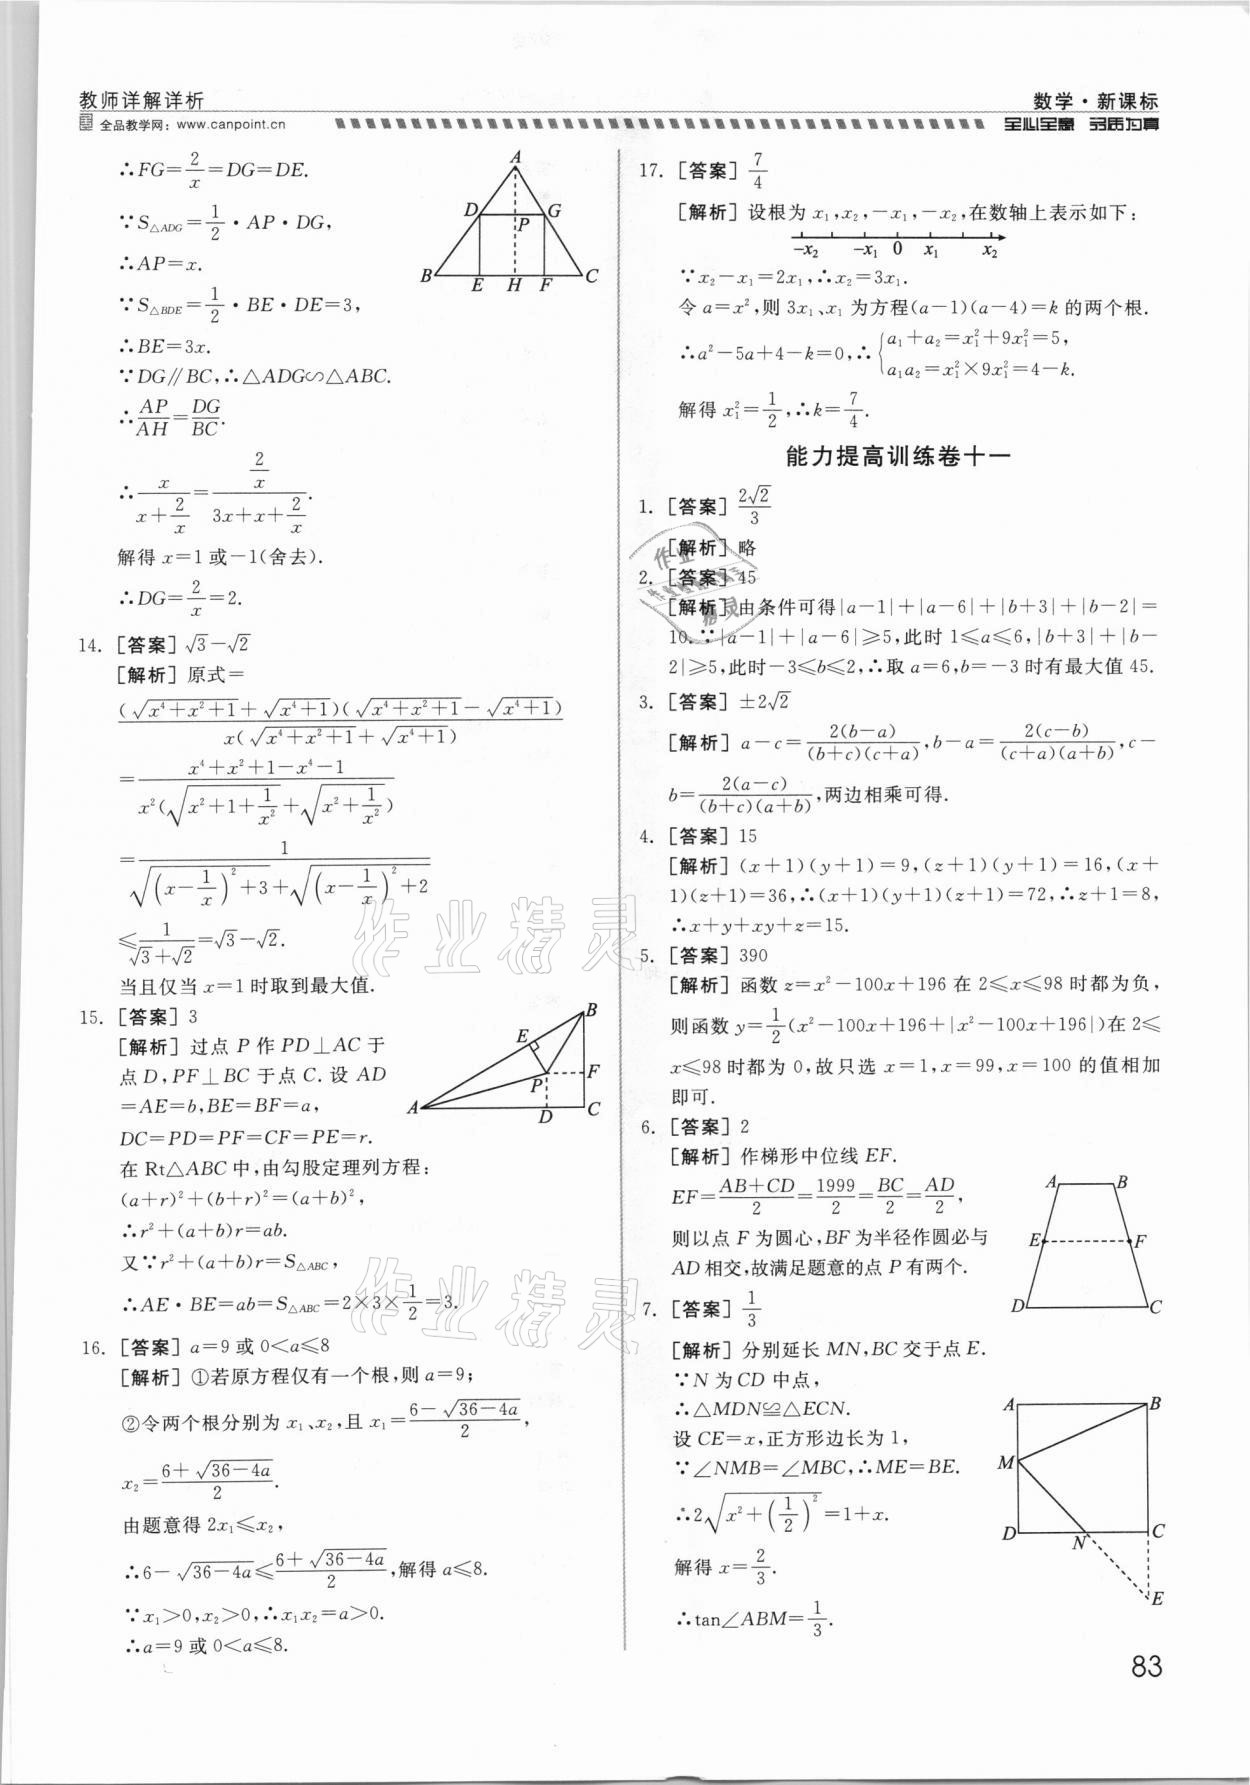 教师详解详析
全品教学网：www.canpoint.cn
数学·新课标
全心全意 名质为真
∴FG=2/x=DG=DE.
∵S△ADG=1/2·AP·DG,
∴AP=x.
∵S△BDE=1/2·BE·DE=3,
∴BE=3x.
∵DG∥BC,∴△ADG∽△ABC.
∴AP/AH=DG/BC.
∴x/(x+2/x)=(2/x)/(3x+x+2/x).
解得 x=1 或-1(舍去).
∴DG=2/x=2.
A
D G
P
B E H F C
14. [答案] √3-√2
[解析] 原式=
(√(x⁴+x²+1)+√(x⁴+1))(√(x⁴+x²+1)-√(x⁴+1))/x(√(x⁴+x²+1)+√(x⁴+1))
=(x⁴+x²+1-x⁴-1)/x²(√(x²+1+1/x²)+√(x²+1/x²))
=1/(√((x-1/x)²+3)+√((x-1/x)²+2))
≤1/(√3+√2)=√3-√2.
当且仅当 x=1 时取到最大值.
15. [答案] 3
[解析] 过点 P 作 PD⊥AC 于
点 D,PF⊥BC 于点 C. 设 AD
=AE=b,BE=BF=a,
DC=PD=PF=CF=PE=r.
在 Rt△ABC 中,由勾股定理列方程:
(a+r)²+(b+r)²=(a+b)²,
∴r²+(a+b)r=ab.
又∵r²+(a+b)r=S△ABC,
∴AE·BE=ab=S△ABC=2×3×1/2=3.
B
E
P F
A D C
16. [答案] a=9 或 0<a≤8
[解析] ①若原方程仅有一个根,则 a=9;
②令两个根分别为 x₁、x₂,且 x₁=(6-√(36-4a))/2,
x₂=(6+√(36-4a))/2.
由题意得 2x₁≤x₂,
∴6-√(36-4a)≤(6+√(36-4a))/2,解得 a≤8.
∵x₁>0,x₂>0,∴x₁x₂=a>0.
∴a=9 或 0<a≤8.
17. [答案] 7/4
[解析] 设根为 x₁,x₂,-x₁,-x₂,在数轴上表示如下:
-x₂ -x₁ 0 x₁ x₂
∵x₂-x₁=2x₁,∴x₂=3x₁.
令 a=x²,则 3x₁、x₁ 为方程(a-1)(a-4)=k 的两个根.
∴a²-5a+4-k=0,∴{a₁+a₂=x₁²+9x₁²=5,
a₁a₂=x₁²×9x₁²=4-k.
解得 x₁²=1/2,∴k=7/4.
能力提高训练卷十一
1. [答案] 2√2/3
[解析] 略
2. [答案] 45
[解析] 由条件可得|a-1|+|a-6|+|b+3|+|b-2|=
10.∵|a-1|+|a-6|≥5,此时 1≤a≤6,|b+3|+|b-
2|≥5,此时-3≤b≤2,∴取 a=6,b=-3 时有最大值 45.
3. [答案] ±2√2
[解析] a-c=2(b-a)/(b+c)(c+a),b-a=2(c-b)/(c+a)(a+b),c-
b=2(a-c)/(b+c)(a+b),两边相乘可得.
4. [答案] 15
[解析] (x+1)(y+1)=9,(z+1)(y+1)=16,(x+
1)(z+1)=36,∴(x+1)(y+1)(z+1)=72,∴z+1=8,
∴x+y+xy+z=15.
5. [答案] 390
[解析] 函数 z=x²-100x+196 在 2≤x≤98 时都为负,
则函数 y=1/2(x²-100x+196+|x²-100x+196|)在 2≤
x≤98 时都为 0,故只选 x=1,x=99,x=100 的值相加
即可.
6. [答案] 2
[解析] 作梯形中位线 EF.
EF=(AB+CD)/2=1999/2=BC/2=AD/2,
则以点 F 为圆心,BF 为半径作圆必与
AD 相交,故满足题意的点 P 有两个.
A B
E F
D C
7. [答案] 1/3
[解析] 分别延长 MN,BC 交于点 E.
∵N 为 CD 中点,
∴△MDN≌△ECN.
设 CE=x,正方形边长为 1,
∵∠NMB=∠MBC,∴ME=BE.
∴2√(x²+(1/2)²)=1+x.
解得 x=2/3.
∴tan∠ABM=1/3.
A B
M
D N C
E
83
作业精灵
作业精灵
作业
精灵